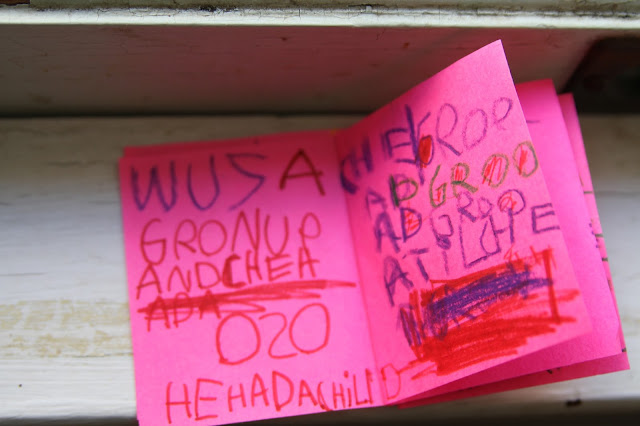 WUS A
GRONUP
AND CHEA
ADA
O2O
HE HAD A CHILD
CHE GROO
AD GROO
AD GROO
A TILCHE